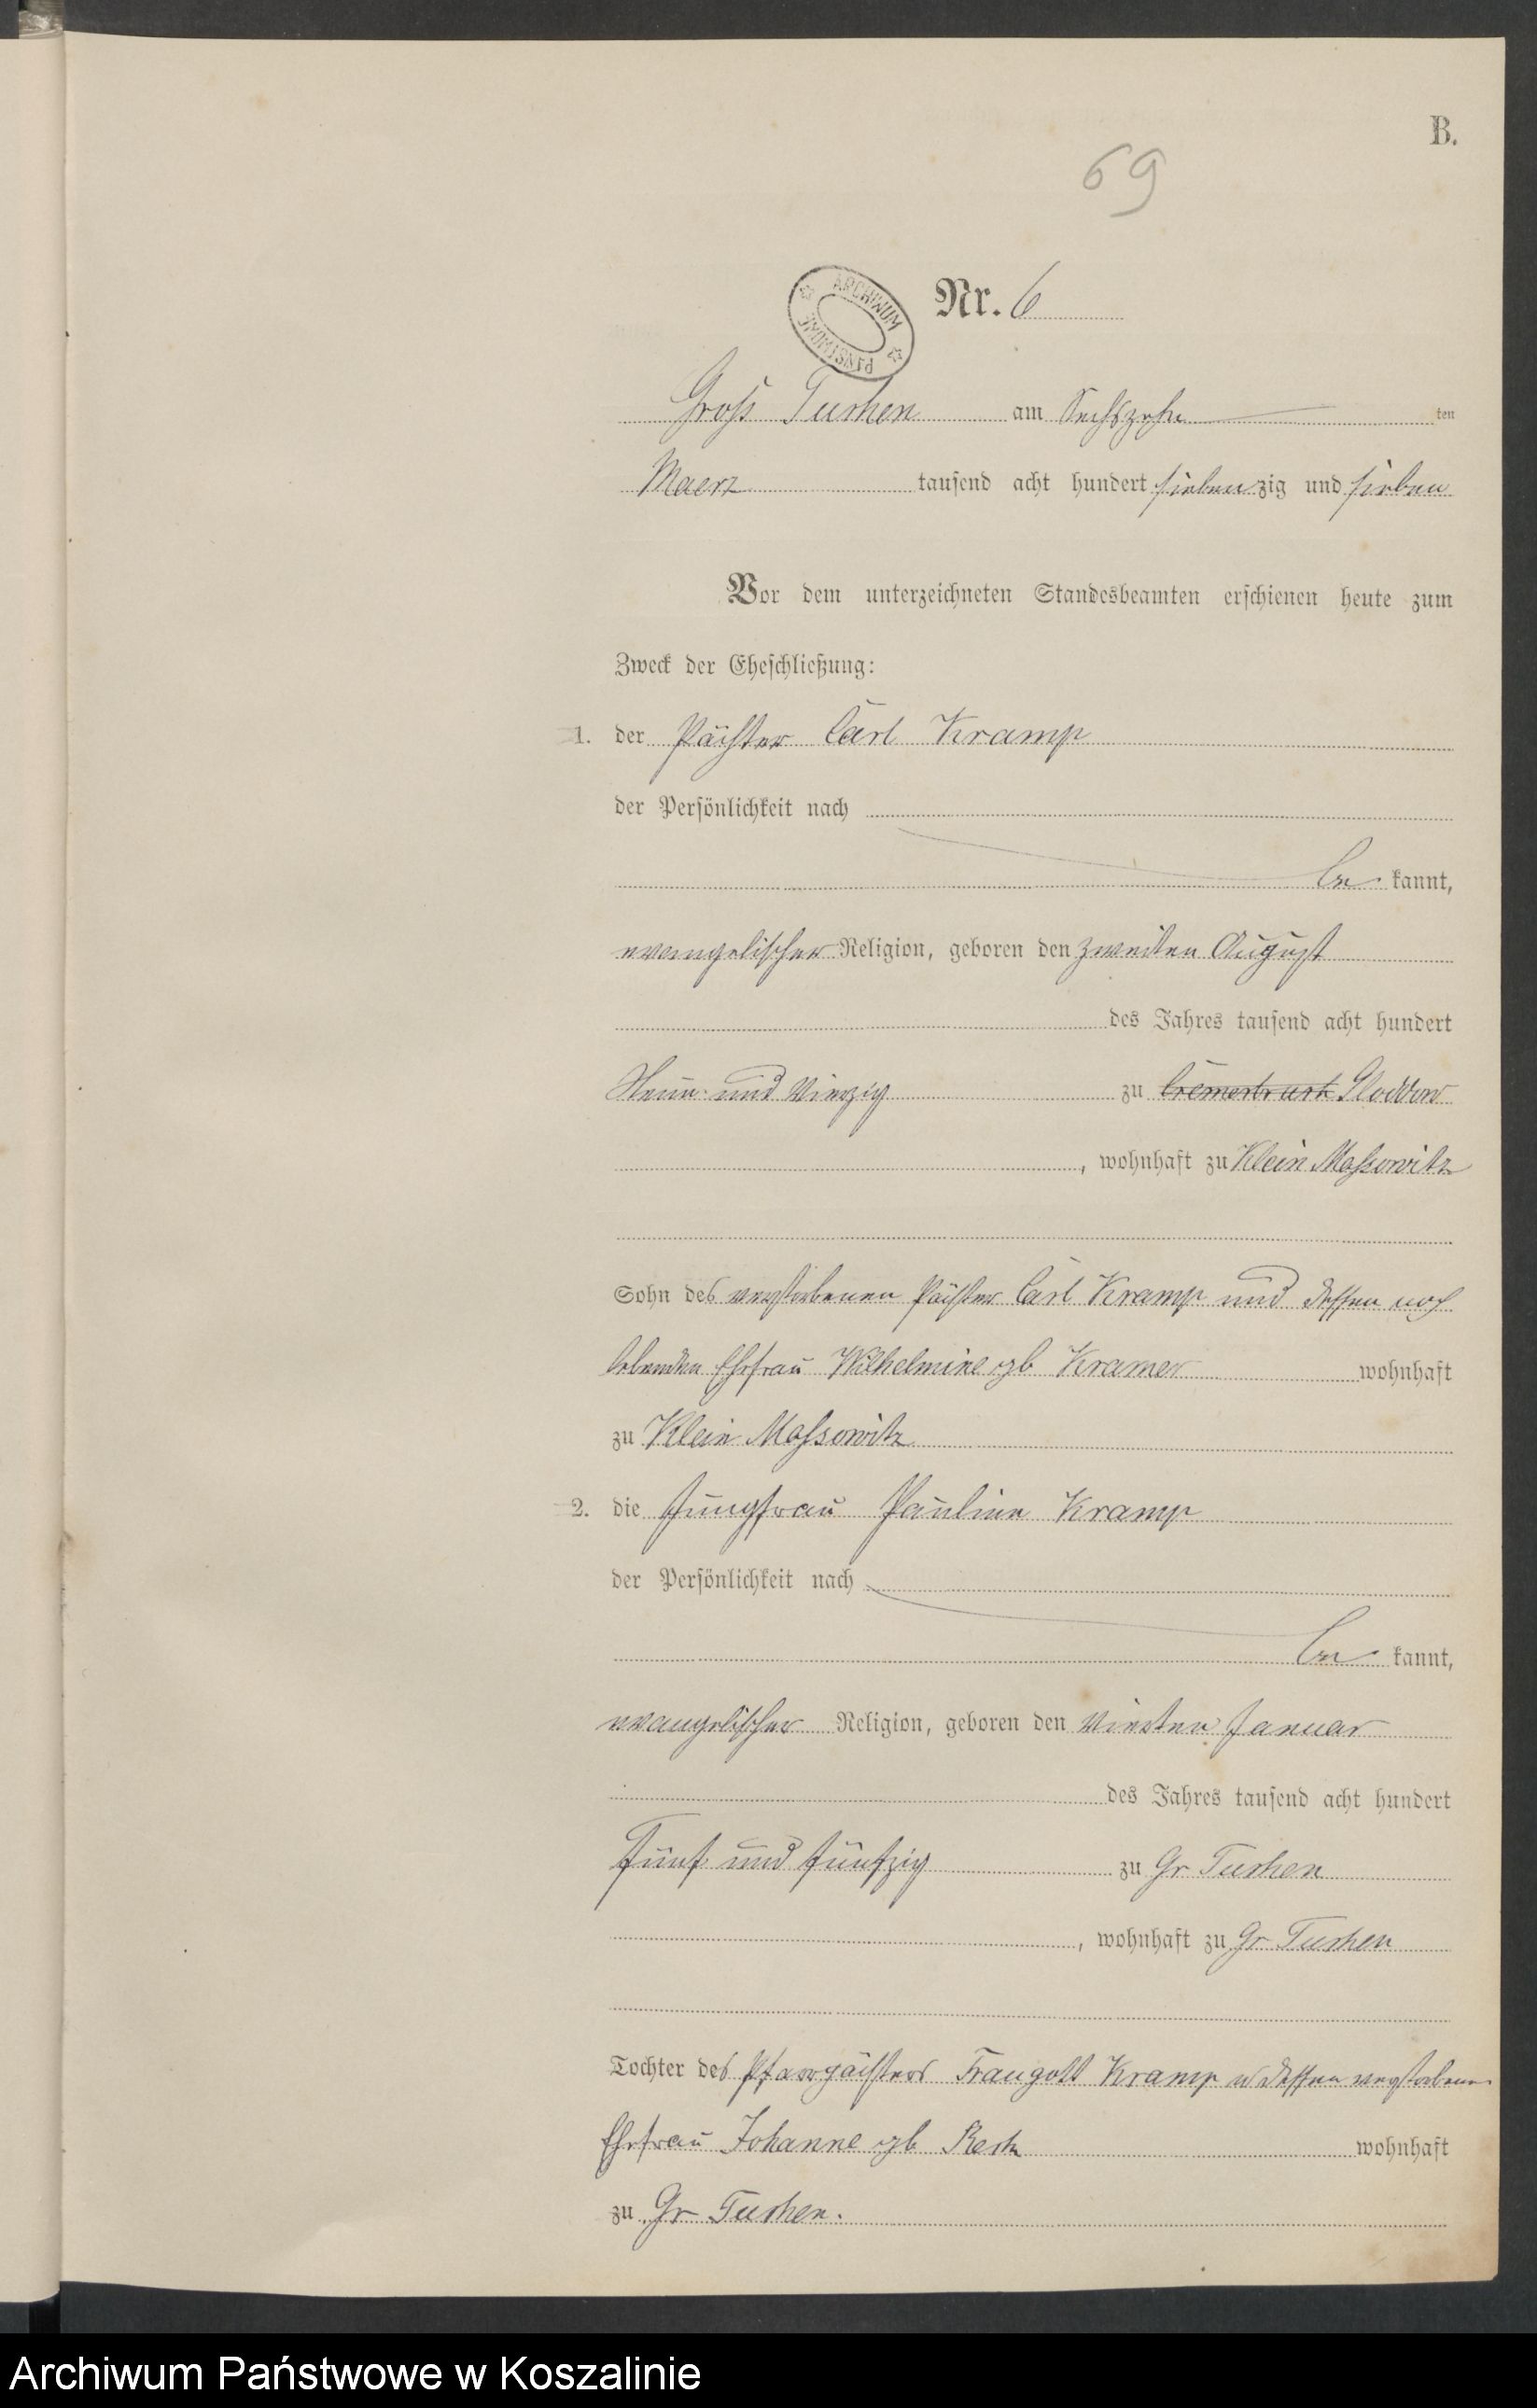 B.
69
ARCHIWUM PAŃSTWOWE
Nr. 6
Groß Tuchen am Sechszehn ten
Maerz tausend acht hundert siebenzig und sieben
Vor dem unterzeichneten Standesbeamten erschienen heute zum
Zweck der Eheschließung:
1. der Pächter Carl Kramp
der Persönlichkeit nach
be kannt,
evangelischer Religion, geboren den zweiten August
des Jahres tausend acht hundert
Neun und Vierzig zu Gloddow
, wohnhaft zu Klein Massowitz
Sohn des verstorbenen Pächter Carl Kramp und dessen noch
lebenden Ehefrau Wilhelmine gb Kramer wohnhaft
zu Klein Massowitz
2. die Jungfrau Pauline Kramp
der Persönlichkeit nach
be kannt,
evangelischer Religion, geboren den Vierten Januar
des Jahres tausend acht hundert
Fünf und fünfzig zu Gr Tuchen
, wohnhaft zu Gr Tuchen
Tochter des Pfarrpächters Traugott Kramp u dessen verstorbene
Ehefrau Johanne gb wohnhaft
zu Gr Tuchen.
Archiwum Państwowe w Koszalinie